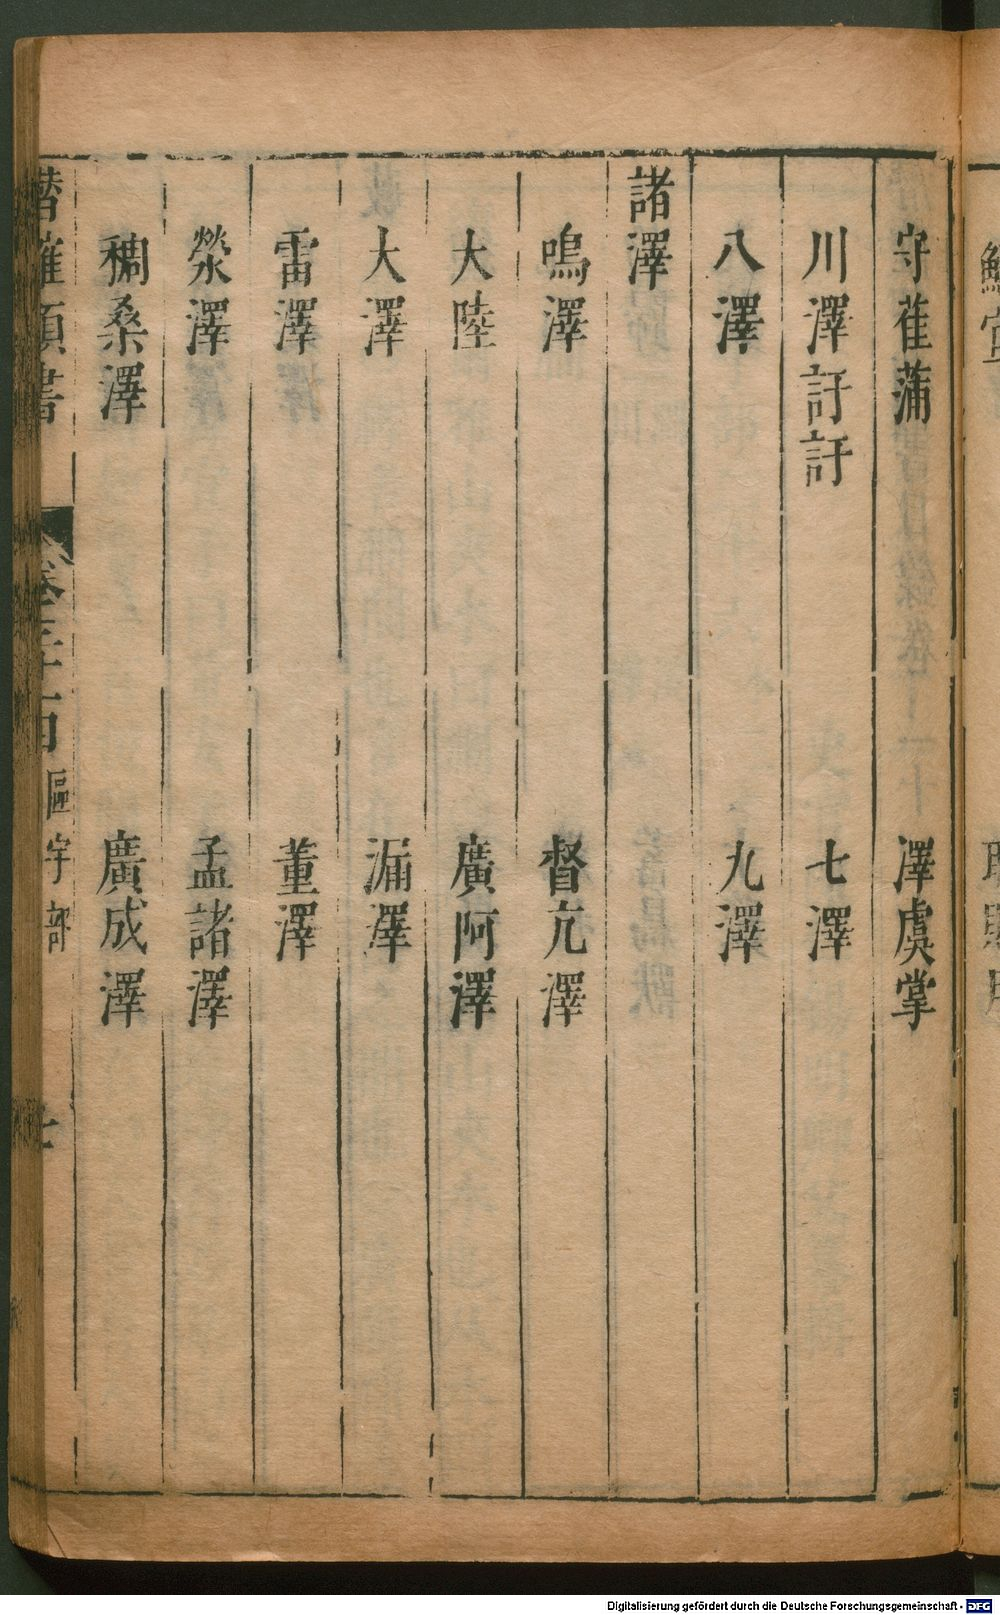 守萑蒲 澤虞掌
川澤訏訏 七澤
八澤 九澤
諸澤
鳴澤 督亢澤
大陸 廣阿澤
大澤 漏澤
雷澤 董澤
滎澤 孟諸澤
稠桑澤 廣成澤
潛確類書 區宇部
Digitalisierung gefördert durch die Deutsche Forschungsgemeinschaft - DFG